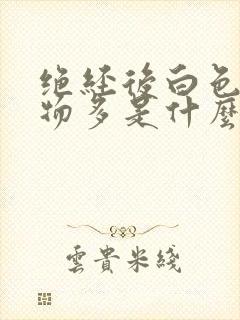 绝经後白色
物多是什麼
雲貴米綫